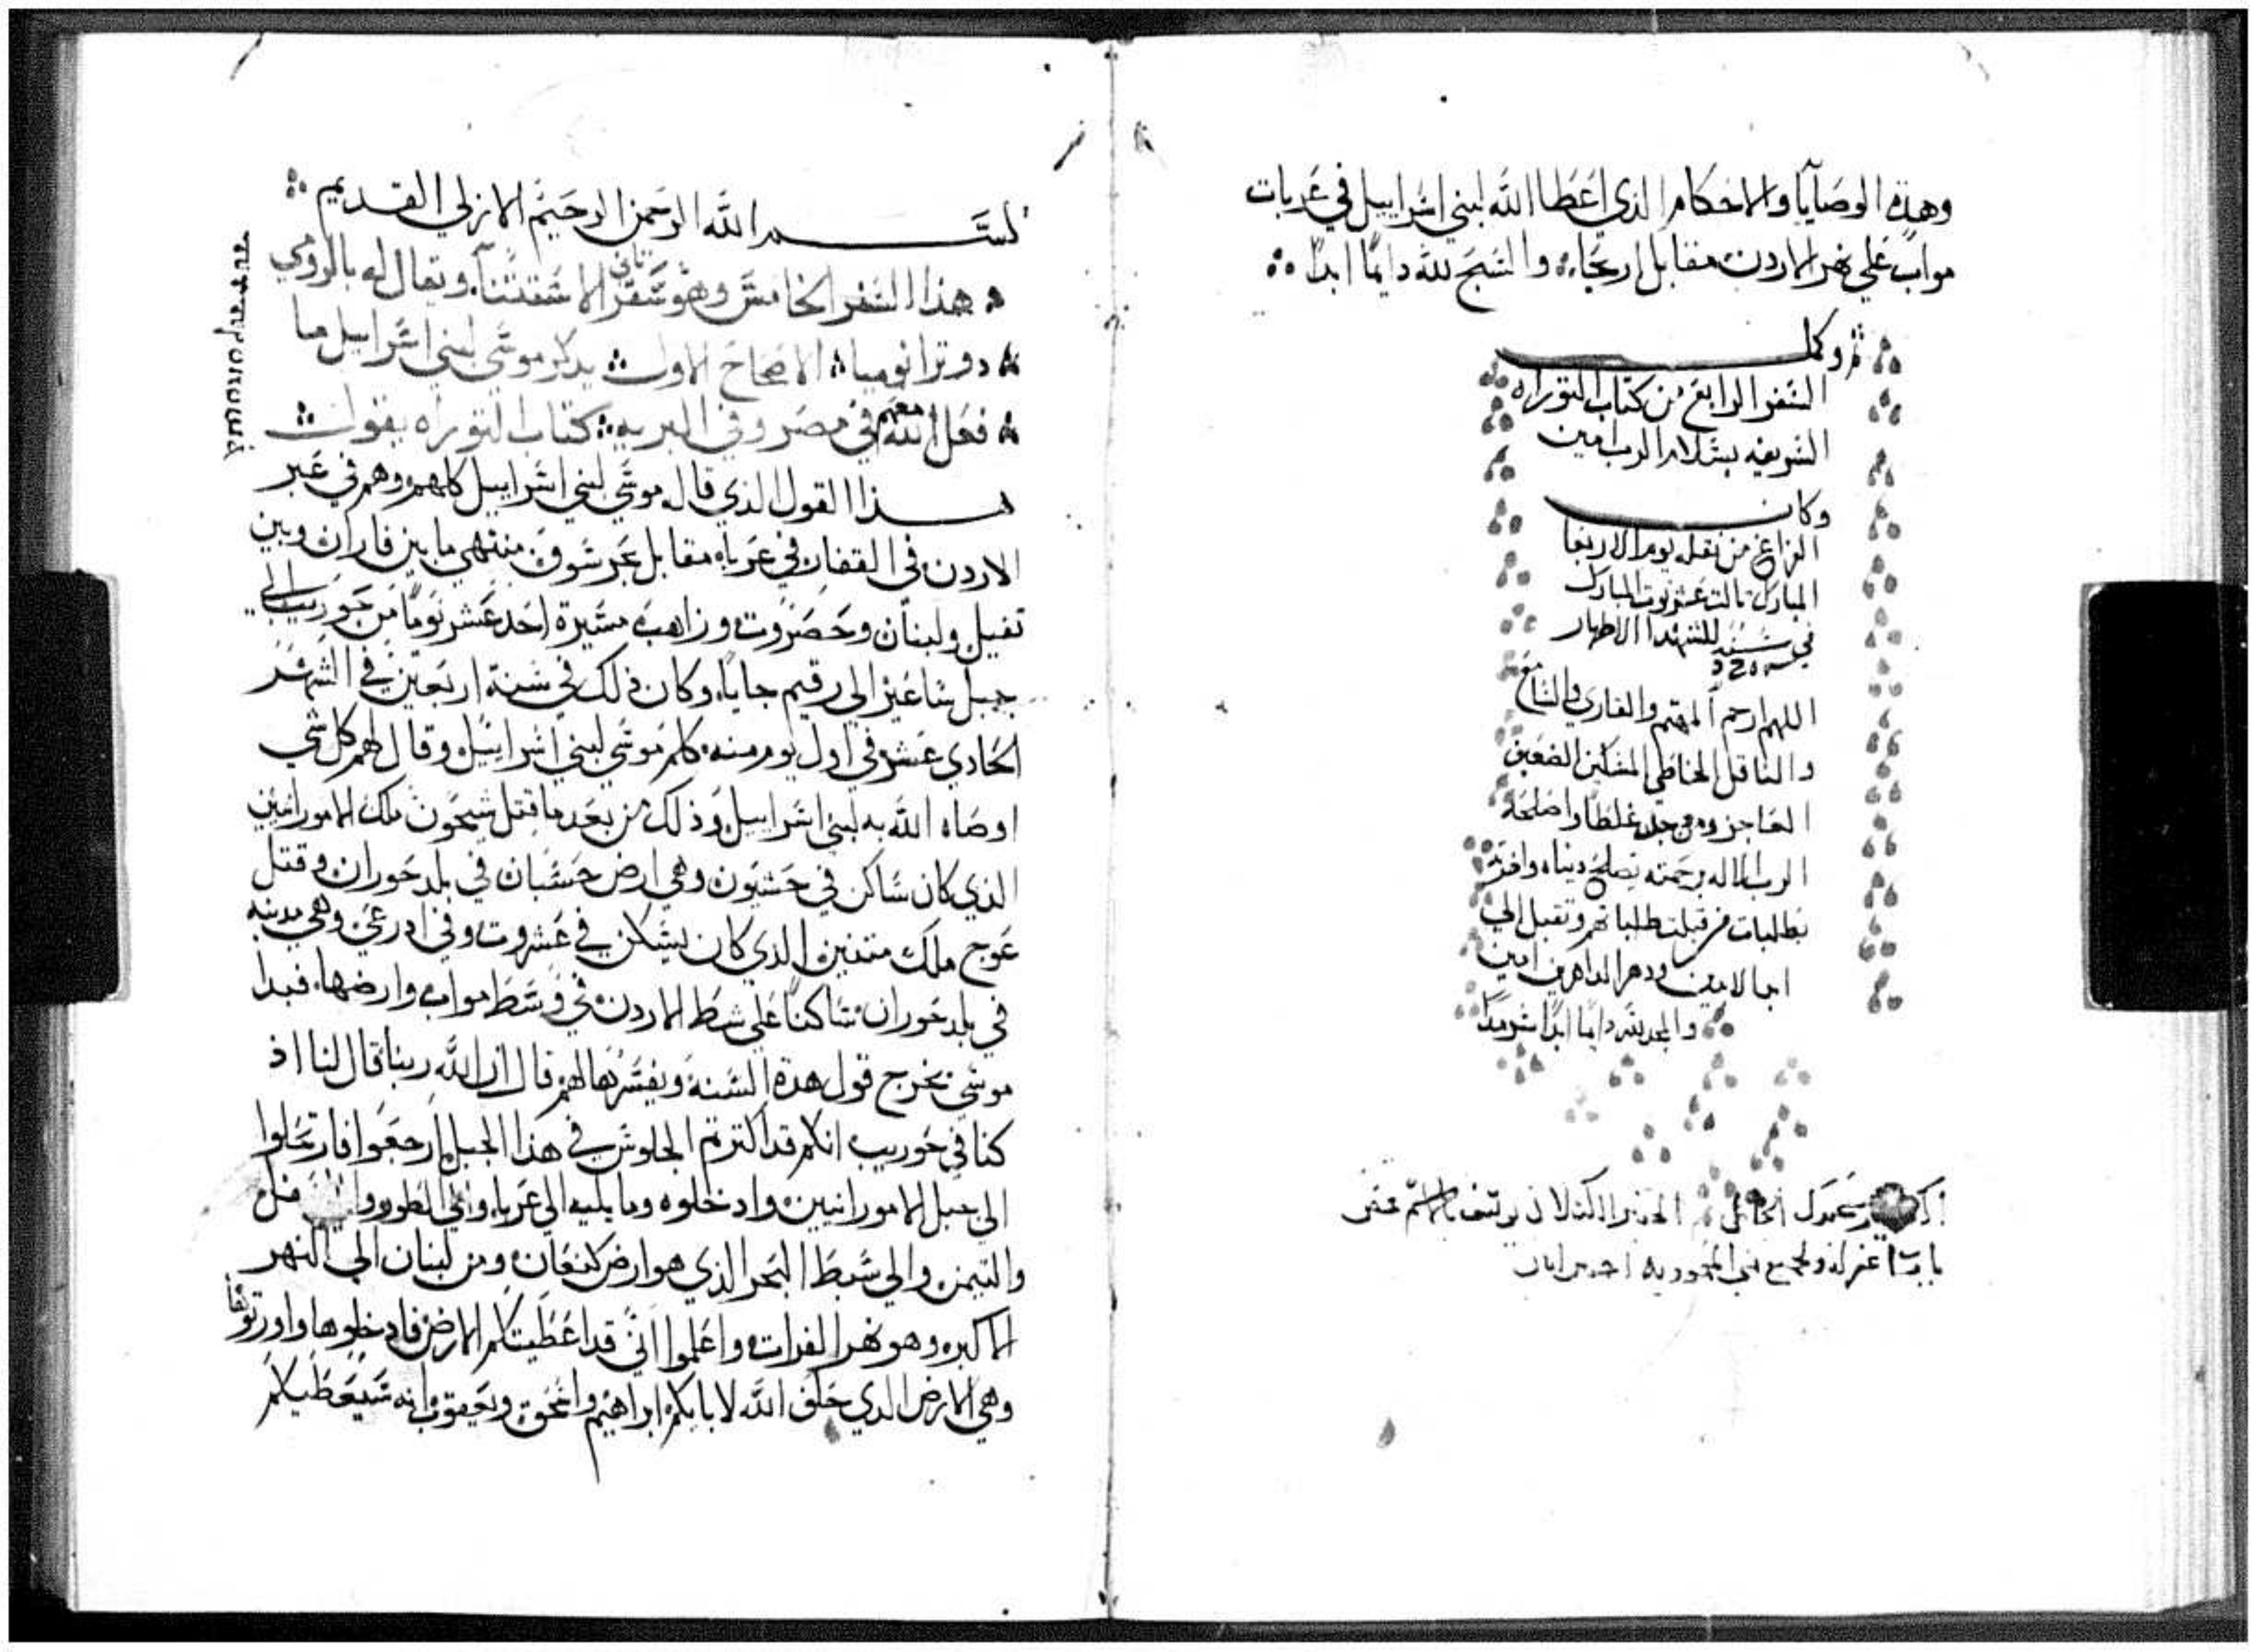 وهذه الوصايا والاحكام الذي اعطا الله لبني اسراييل في عربات
مواب علي نهر الاردن مقابل اريحا والسبح لله دايما ابدا
تم وكمل
السفر الرابع من كتاب التوراه
الشريفه بسلام الرب امين
وكان
الفراغ من نقله يوم الاربعا
المبارك ثالث عشر توت المبارك
في سنه للشهدا الاطهار
اللهم ارحم المهتم والقاري والسامع
والناقل الخاطي المسكين الضعيف
العاجز ومن وجد غلطا واصلحه
الرب الاله برحمته يصلح دنياه واخرته
بطلبات من قبلت طلباتهم وتقبل الي
ابد الابدين ودهر الداهرين امين
والمجد لله دايما ابدا سرمدا
بسم الله الرحمن الرحيم الازلي القديم
هذا السفر الخامس وهو سفر ثاني الاشتثنا ويقال له بالرومي
دوترانوميا الاصحاح الاول يذكر موسي لبني اسراييل ما
فعل الله معهم في مصر وفي البريه كتاب التوراه يقول
هذا القول الذي قال موسي لبني اسراييل كلهم وهم في عبر
الاردن في القفار في عرباه مقابل بحر سوف منتهي ما بين فاران وبين
تفيل ولبنان وحضروت وزاهب مسيرة احد عشر يوما من حوريب الي
جبل ساعير الي رقيم جايا وكان ذلك في سنة اربعين في الشهر
الحادي عشر في اول يوم منه كلم موسي لبني اسراييل وقال لهم كل شي
اوصاه الله به لبني اسراييل وذلك من بعد ما قتل سيحون ملك الامورانيين
الذي كان ساكن في حشبون وهي ارض حسبان في بلد حوران وقتل
عوج ملك متنين الذي كان يسكن في عشروت وفي ادرعي وهي مدينه
في بلد حوران ساكنا علي شط الاردن في وسط مواب وارضها فبدا
موسي يخرج قول هذه السنة ويفسرها لهم قال ان الله ربنا قال لنا اذ
كنا في حوريب انكم قد اكترتم الجلوس في هذا الجبل ارجعوا فارتحلوا
الي جبل الامورانيين وادخلوه وما يليه الي عربا والي الطور
والتيمن والي شط البحر الذي هو ارض كنعان ومن لبنان الي النهر
الاكبر وهو نهر الفرات واعلموا اني قد اعطيتكم الارض فادخلوها واورتوها
وهي الارض الذي حلف الله لابايكم ابراهيم واسحق ويعقوب انه سيعطيكم